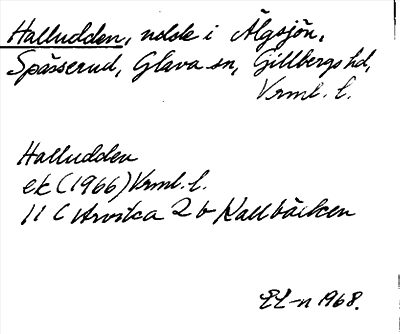 Halludden, udde i Älgsjön,
Spässerud, Glava sn, Gillbergs hd,
Vrml. l.
Halludden
ek (1966) Vrml. l.
11 C Arvika 2 b Kallbäcken
EL-n 1968.